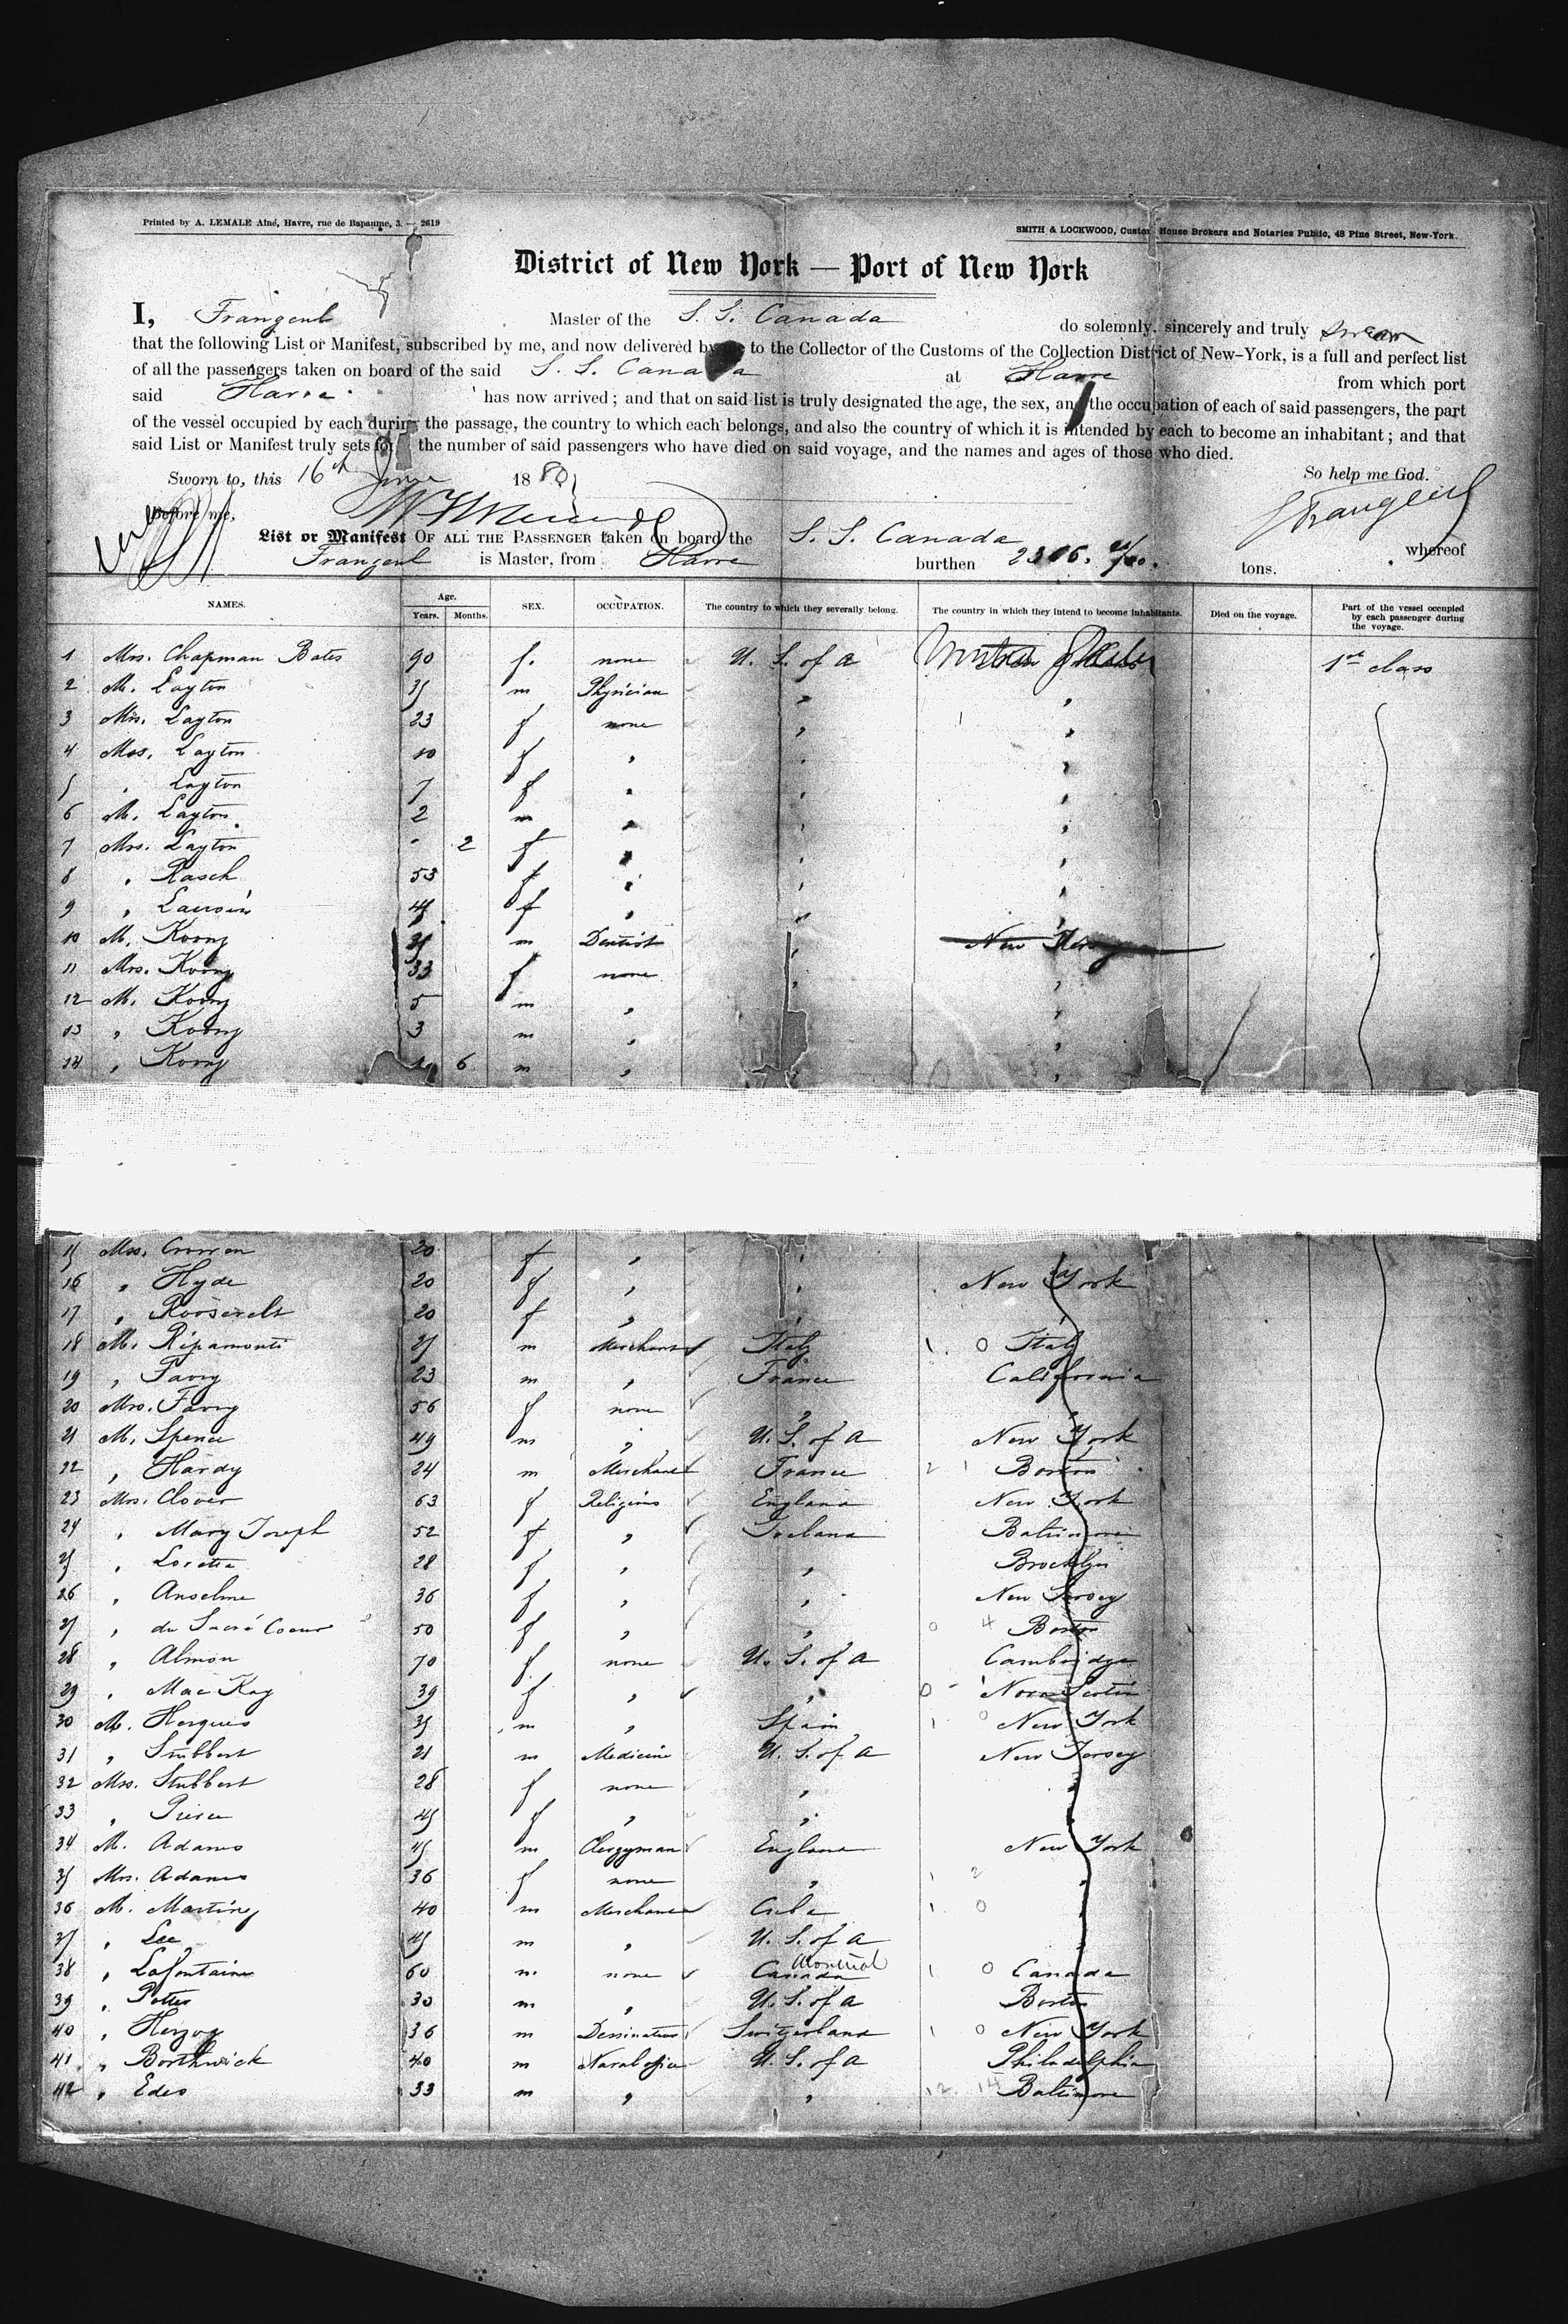 Printed by A. LEMALE Aîné, Havre, rue de Bapaume, 3. — 2619
SMITH & LOCKWOOD, Custom House Brokers and Notaries Public, 48 Pine Street, New-York.
District of New York — Port of New York
I, Frangeul Master of the S. S. Canada do solemnly, sincerely and truly swear
that the following List or Manifest, subscribed by me, and now delivered by me to the Collector of the Customs of the Collection District of New-York, is a full and perfect list
of all the passengers taken on board of the said S. S. Canada at Havre from which port
said Havre has now arrived; and that on said list is truly designated the age, the sex, and the occupation of each of said passengers, the part
of the vessel occupied by each during the passage, the country to which each belongs, and also the country of which it is intended by each to become an inhabitant; and that
said List or Manifest truly sets for the number of said passengers who have died on said voyage, and the names and ages of those who died.
Sworn to, this 16th June 1880 So help me God.
before me, Frangeul
List or Manifest OF ALL THE PASSENGER taken on board the S. S. Canada whereof
Frangeul is Master, from Havre burthen tons.
NAMES. Age. Years. Months. SEX. OCCUPATION. The country to which they severally belong. The country in which they intend to become inhabitants. Died on the voyage. Part of the vessel occupied by each passenger during the voyage.
1 Mrs. Chapman Bates 90 f. none U. S. of A 1st class
2 M. Layton 35 m Physician " "
3 Mrs. Layton 23 f none " "
4 Mrs. Layton 10 f " " "
5 " Layton 7 f " " "
6 M. Layton 2 m " " "
7 Mrs. Layton - 2 f " " "
8 " Rasch 53 f " " "
9 " 45 f " " "
10 M. Koong 35 m Dentist " New Jersey
11 Mrs. Koong 33 f none " "
12 M. Koong 5 m " "
13 " Koong 3 m " "
14 " Koong 6 m " "
15 Mrs. Crowen 20 f " "
16 " Hyde 20 f " " New York
17 " Roosevelt 20 f " " "
18 M. Ripamonti 25 m Merchant Italy 1. 0 Italy
19 " Favry 23 m " France California
20 Mrs. Favry 56 f none " "
21 M. Spence 49 m " U. S. of A New York
22 " Hardy 24 m Merchant France 2 1 Boston
23 Mrs. Clover 63 f Religious England New York
24 " Mary Joseph 52 f " Ireland Baltimore
25 " Loretta 28 f " " Brooklyn
26 " Anselme 36 f " " New Jersey
27 " du Sacré Coeur 50 f " " 0 4 Boston
28 " Almon 70 f none U. S. of A Cambridge
29 " Mac Kay 39 f " " 0 - 1 Nova Scotia
30 M. Hergues 35 m " Spain 1 0 New York
31 " Stubbert 21 m Medicine U. S. of A New Jersey
32 Mrs. Stubbert 28 f none " "
33 " Pierce 45 f " " "
34 M. Adams 45 m Clergyman England New York
35 Mrs. Adams 36 f none " 1 2 "
36 M. Martinez 40 m Merchant Cuba 1. 0
37 " Lee 45 m " U. S. of A "
38 " Lafontaine 60 m none Canada Montreal 1 0 Canada
39 " Potter 30 m " U. S. of A Boston
40 " Herzog 36 m Dessinateur Switzerland 1 0 New York
41 " Borthwick 40 m Naval officer U. S. of A Philadelphia
42 " Edes 33 m " " 12. 14 Baltimore